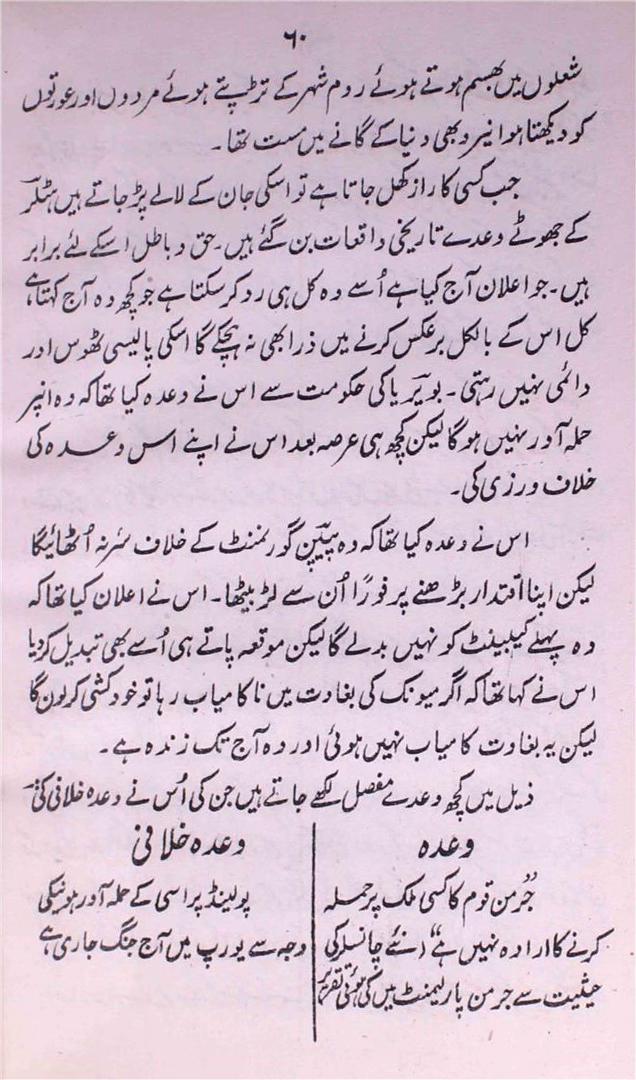 ۶۰
شعلوں میں بھسم ہوتے ہوئے روم شہر کے تڑپتے ہوئے مردوں اور عورتوں
کو دیکھتا ہوا نیرو بھی دنیا کے گانے میں مست تھا۔
جب کسی کا راز کھل جاتا ہے تو اسکی جان کے لالے پڑ جاتے ہیں ہٹلر
کے جھوٹے وعدے تاریخی واقعات بن گئے ہیں۔ حق و باطل اسکے لئے برابر
ہیں۔ جو اعلان آج کیا ہے اُسے وہ کل ہی رد کر سکتا ہے جو کچھ وہ آج کہتا ہے
کل اس کے بالکل برعکس کرنے میں ذرا بھی نہ ہچکے گا اسکی پالیسی ٹھوس اور
دائمی نہیں رہتی۔ بویریا کی حکومت سے اس نے وعدہ کیا تھا کہ وہ انپر
حملہ آور نہیں ہو گا لیکن کچھ ہی عرصہ بعد اس نے اپنے اس وعدہ کی
خلاف ورزی کی۔
اس نے وعدہ کیا تھا کہ وہ پیپن گورنمنٹ کے خلاف سر نہ اُٹھائیگا
لیکن اپنا اقتدار بڑھنے پر فوراً اُن سے لڑ بیٹھا۔ اس نے اعلان کیا تھا کہ
وہ پہلے کیبینٹ کو نہیں بدلے گا لیکن موقعہ پاتے ہی اُسے بھی تبدیل کر دیا
اس نے کہا تھا کہ اگر میونک کی بغاوت میں ناکامیاب رہا تو خودکشی کر لوں گا
لیکن یہ بغاوت کامیاب نہیں ہوئی اور وہ آج تک زندہ ہے۔
ذیل میں کچھ وعدے مفصل لکھے جاتے ہیں جن کی اُس نے وعدہ خلافی کی
وعدہ
"جرمن قوم کا کسی ملک پر حملہ
کرنے کا ارادہ نہیں ہے" (نئے چانسلر کی
حیثیت سے جرمن پارلیمنٹ میں کی ہوئی تقریر
وعدہ خلافی
پولینڈ پر اسی کے حملہ آور ہونیکی
وجہ سے یورپ میں آج جنگ جاری ہے